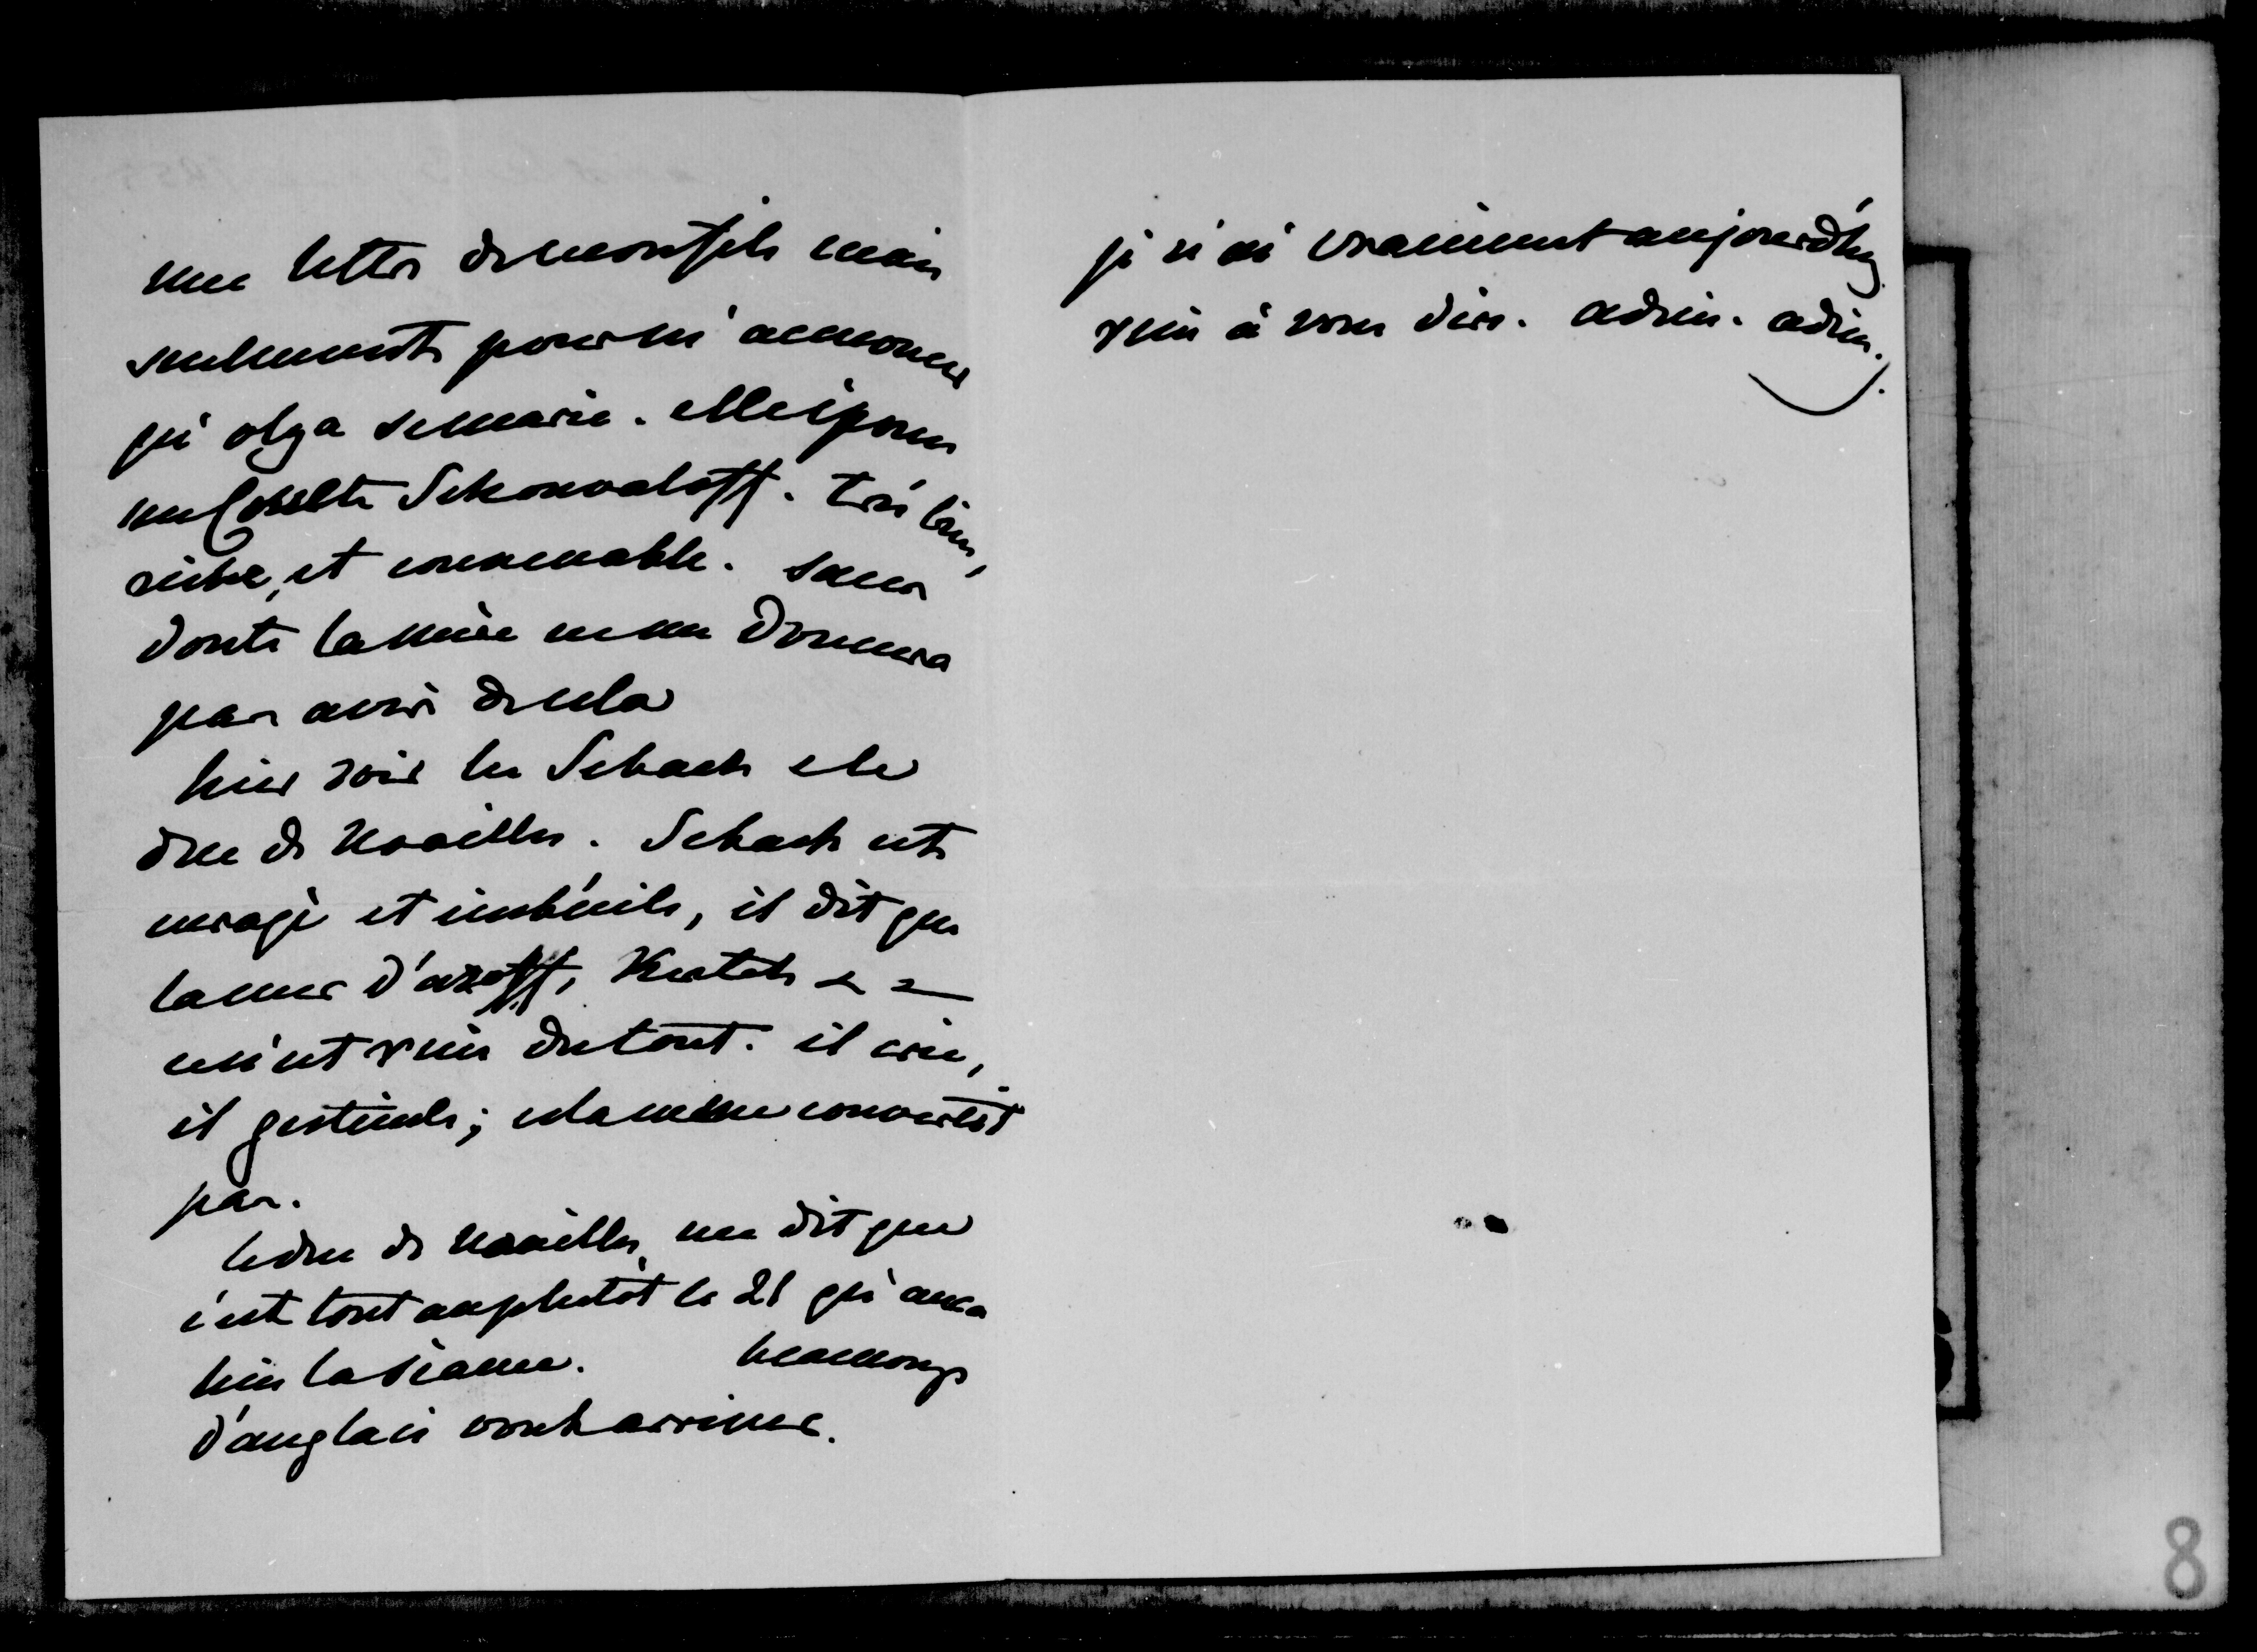 une lettre de mon fils mais
seulement pour m'annoncer
qu'Olga se marie. Elle épouse
un Comte Schouvaloff. Très bien,
riche, et convenable. Sans
doute la mère ne me donnera
pas avis de cela
hier soir les Sebach et le
duc de Noailles. Sebach est
enragé et imbécile, il dit que
la mer d'azoff, Kertch & &
ce n'est rien du tout. il crie,
il gesticule; cela ne me convertit
pas.
le duc de Noailles me dit que
c'est tout au plutôt le 21 qu'aura
lieu la séance. beaucoup
d'anglais vont arriver.
je n'ai vraiment aujourd'huy
rien à vous dire. adieu. adieu.
8